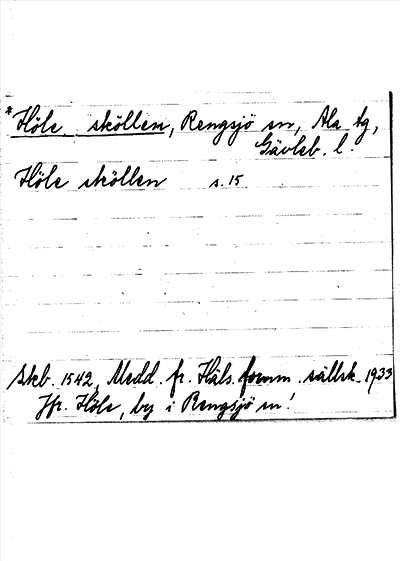 *Höle sköllen, Rengsjö sn, Ala tg,
Gävleb. l.
Höle sköllen s. 15
Skb. 1542, Medd. fr. Häls. fornm. sällsk. 1933
Jfr. Höle, by i Rengsjö sn!